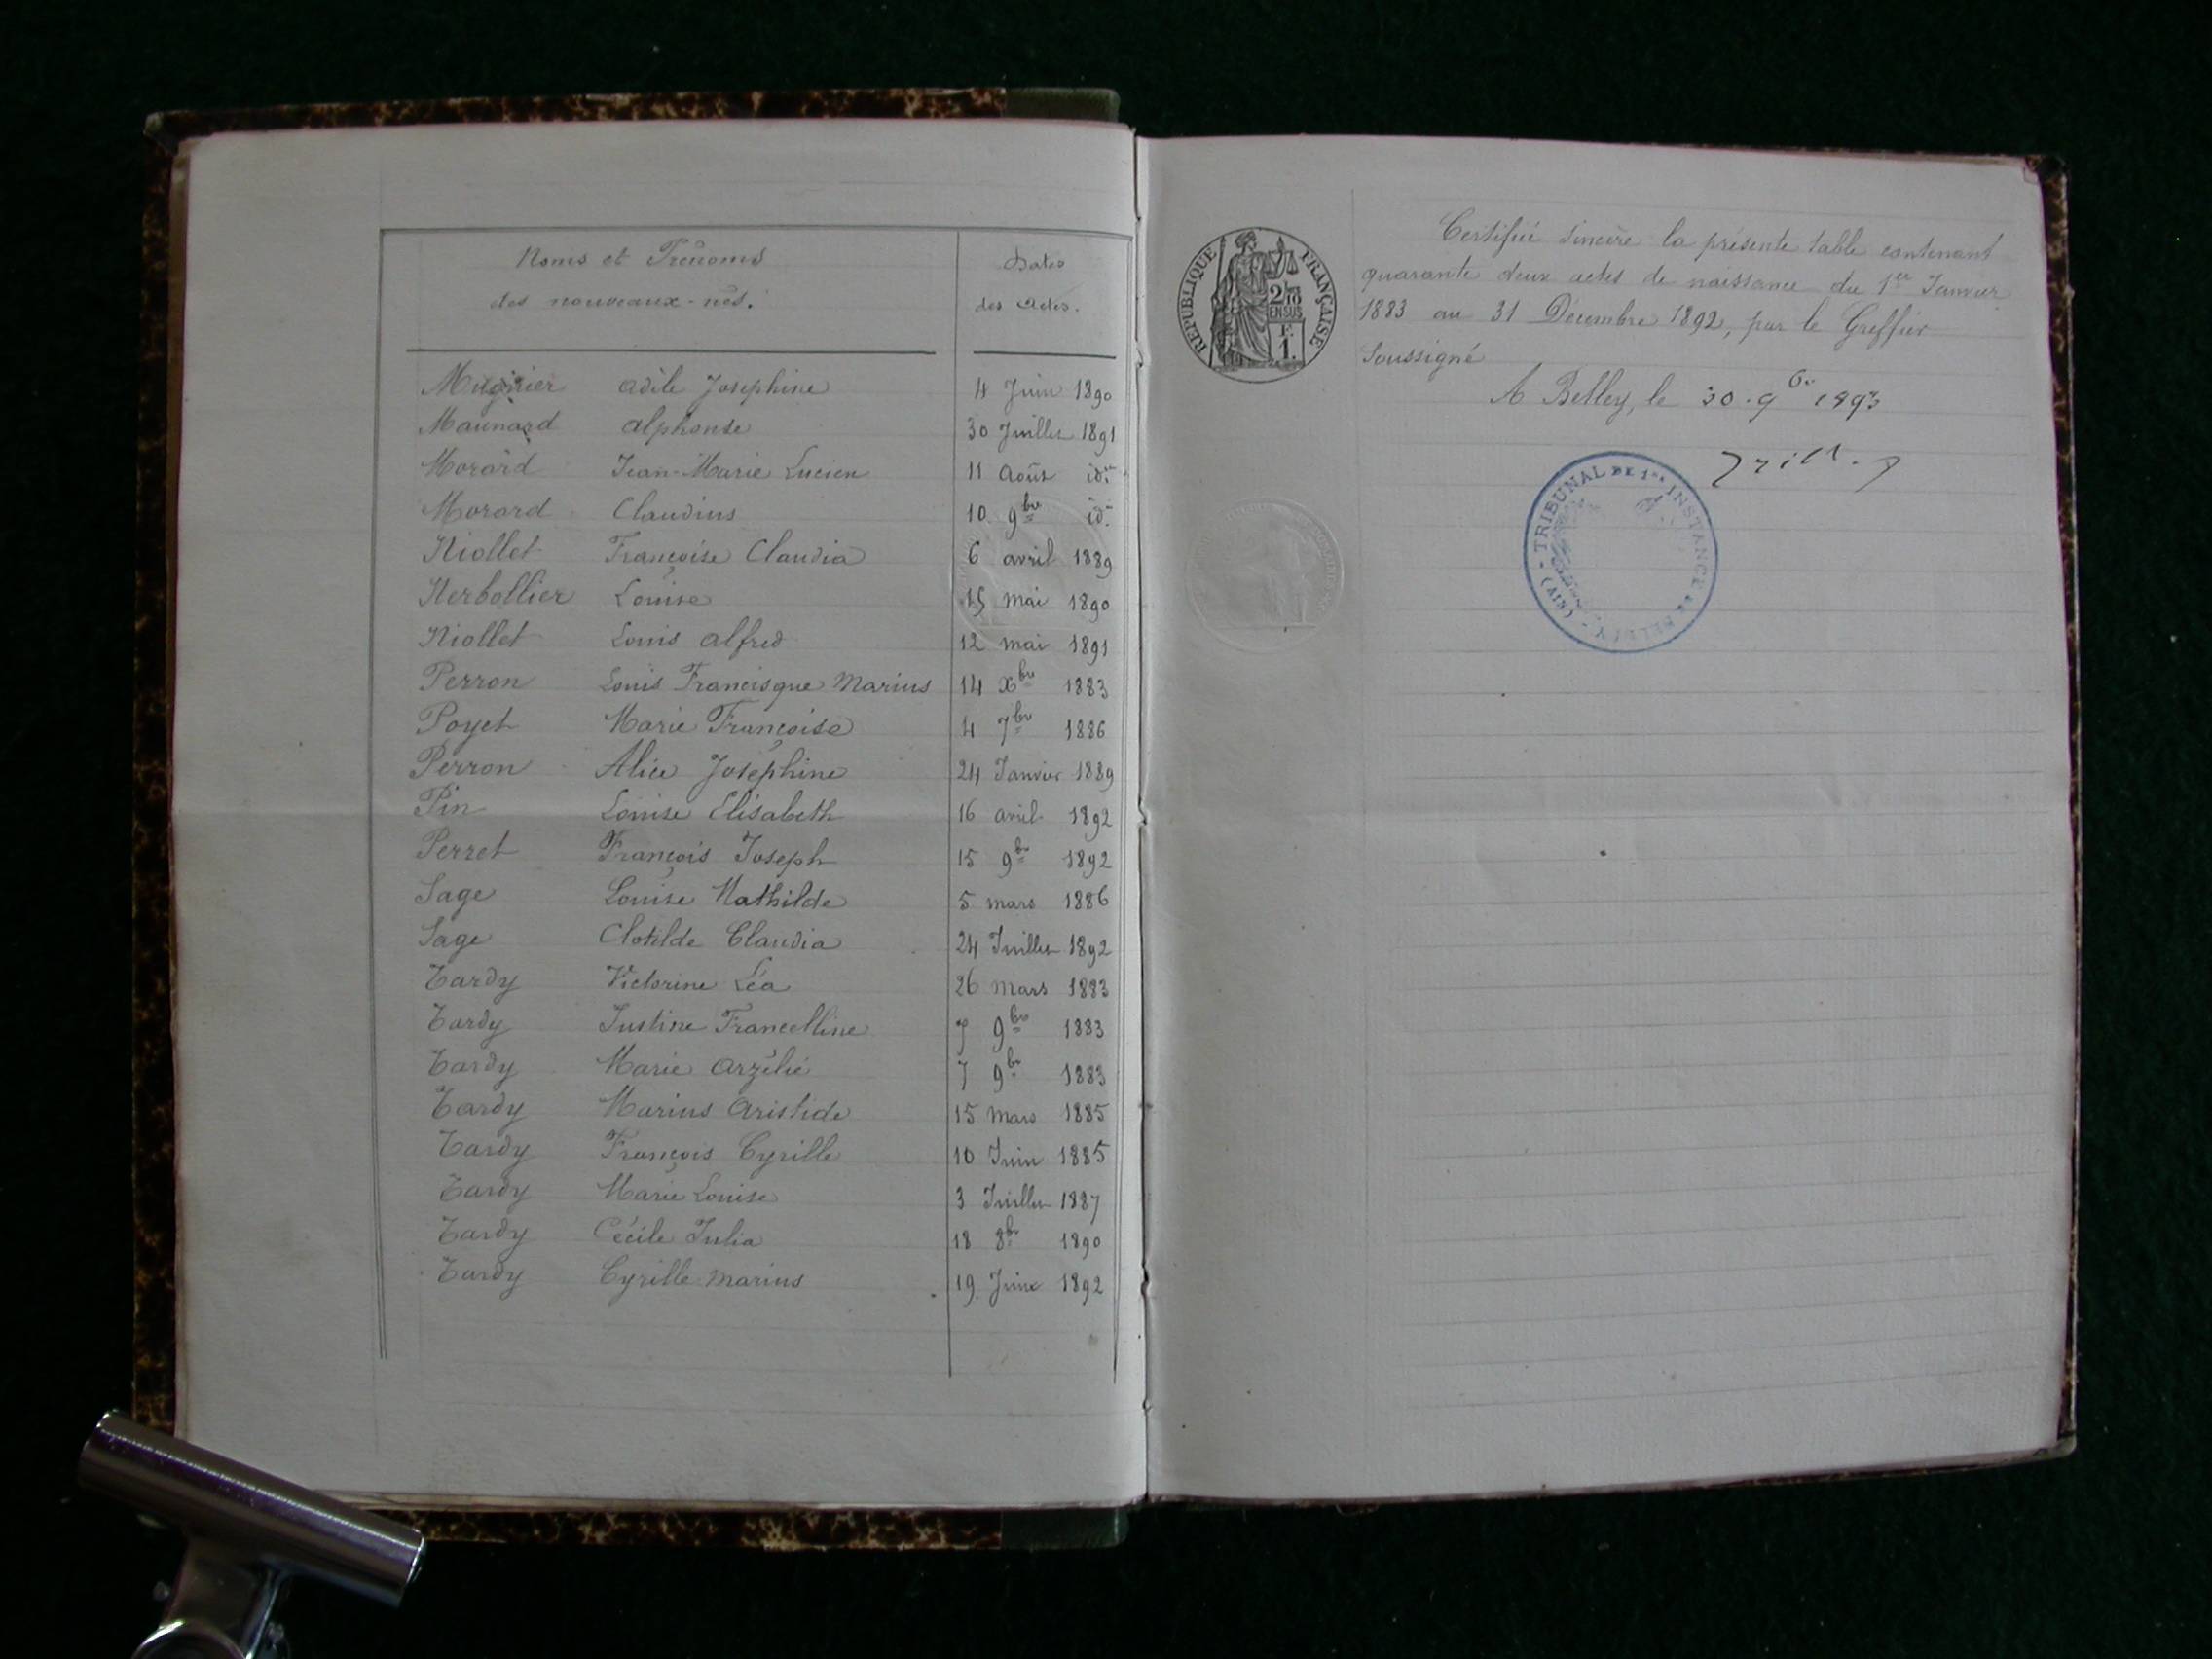 Noms et Prénoms
des nouveaux-nés.
Dates
des Actes.
Mugnier Adèle Joséphine 4 Juin 1890
Maunard Alphonse 30 Juillet 1891
Morard Jean-Marie Lucien 11 Août id.
Morard Claudius 10 9bre id.
Niollet Françoise Claudia 6 avril 1889
Nerbollier Louise 15 mai 1890
Niollet Louis Alfred 12 mai 1891
Perron Louis Francisque Marius 14 Xbre 1883
Poyet Marie Françoise 4 7bre 1886
Perron Alice Joséphine 24 Janvier 1889
Pin Louise Elisabeth 16 avril 1892
Perret François Joseph 15 9bre 1892
Sage Louise Mathilde 5 mars 1886
Sage Clotilde Claudia 24 Juillet 1892
Tardy Victorine Léa 26 mars 1883
Tardy Justine Francelline 7 9bre 1883
Tardy Marie Arzélie 7 9bre 1883
Tardy Marius Aristide 15 mars 1885
Tardy François Cyrille 10 Juin 1885
Tardy Marie Louise 3 Juillet 1887
Tardy Cécile Julia 18 8bre 1890
Tardy Cyrille Marius 19 Juin 1892
REPUBLIQUE FRANÇAISE
2/10
EN SUS
F.
1.
Certifié sincère la présente table contenant
quarante deux actes de naissance du 1er Janvier
1883 au 31 Décembre 1892, par le Greffier
soussigné
A Belley, le 30 9bre 1893
TRIBUNAL DE 1re INSTANCE DE BELLEY - (AIN) -